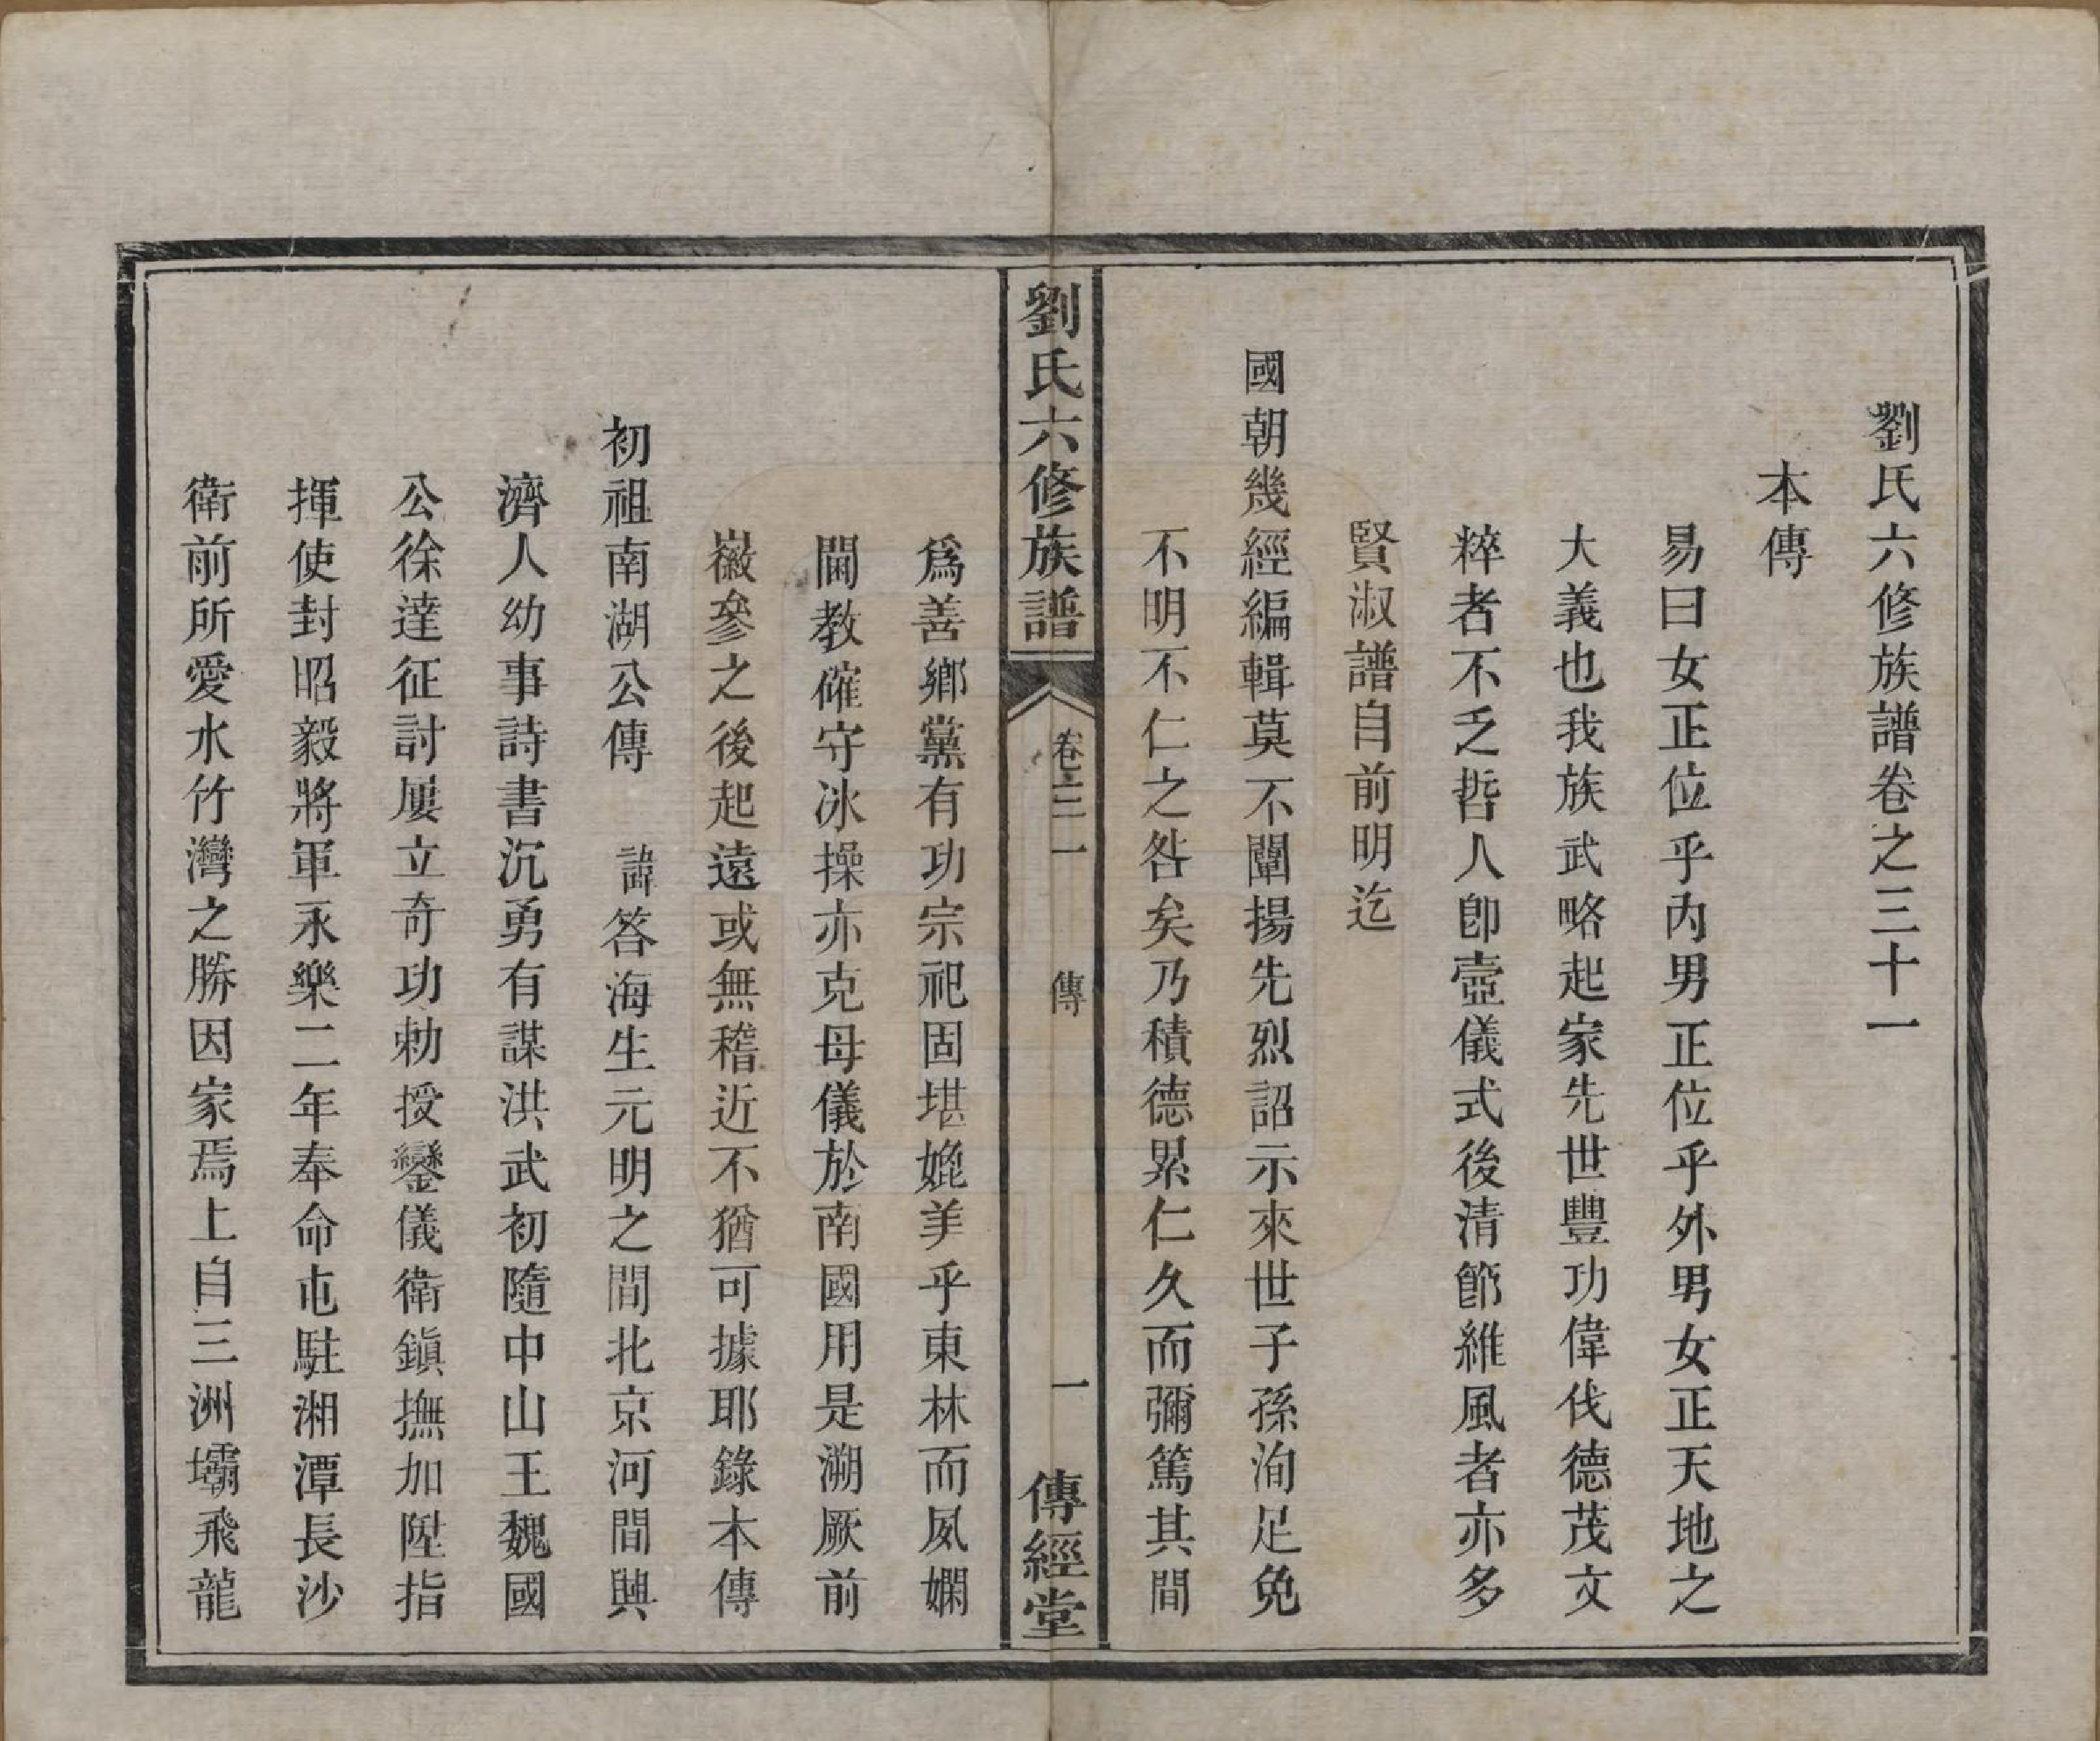 劉氏六修族譜卷之三十一
本傳
易曰女正位乎內男正位乎外男女正天地之
大義也我族武略起家先世豐功偉伐德茂文
粹者不乏哲人卽壼儀式後清節維風者亦多
賢淑譜自前明迄
國朝幾經編輯莫不闡揚先烈詔示來世子孫洵足免
不明不仁之咎矣乃積德累仁久而彌篤其間
劉氏六修族譜
卷三一
傳
一
傳經堂
爲善鄉黨有功宗祀固堪媲美乎東林而夙嫻
閫教確守冰操亦克母儀於南國用是溯厥前
徽參之後起遠或無稽近不猶可據耶錄本傳
初祖南湖公傳
諱答海生元明之間北京河間興
濟人幼事詩書沉勇有謀洪武初隨中山王魏國
公徐達征討屢立奇功勅授鑾儀衛鎭撫加陞指
揮使封昭毅將軍永樂二年奉命屯駐湘潭長沙
衛前所愛水竹灣之勝因家焉上自三洲壩飛龍